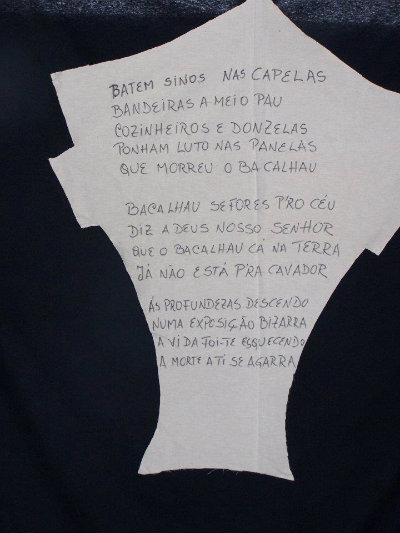 BATEM SINOS NAS CAPELAS
BANDEIRAS A MEIO PAU
COZINHEIROS E DONZELAS
PONHAM LUTO NAS PANELAS
QUE MORREU O BACALHAU
BACALHAU SE FORES P'RO CÉU
DIZ A DEUS NOSSO SENHOR
QUE O BACALHAU CÁ NA TERRA
JÁ NÃO ESTÁ P'RA CAVADOR
ÁS PROFUNDEZAS DESCENDO
NUMA EXPOSIÇÃO BIZARRA
A VIDA FOI-TE ESQUECENDO
A MORTE A TI SE AGARRA